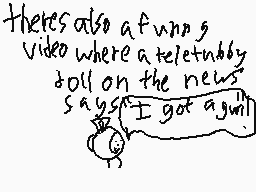 theres also a funny
video where a teletubby
doll on the news
says "I got a gun"